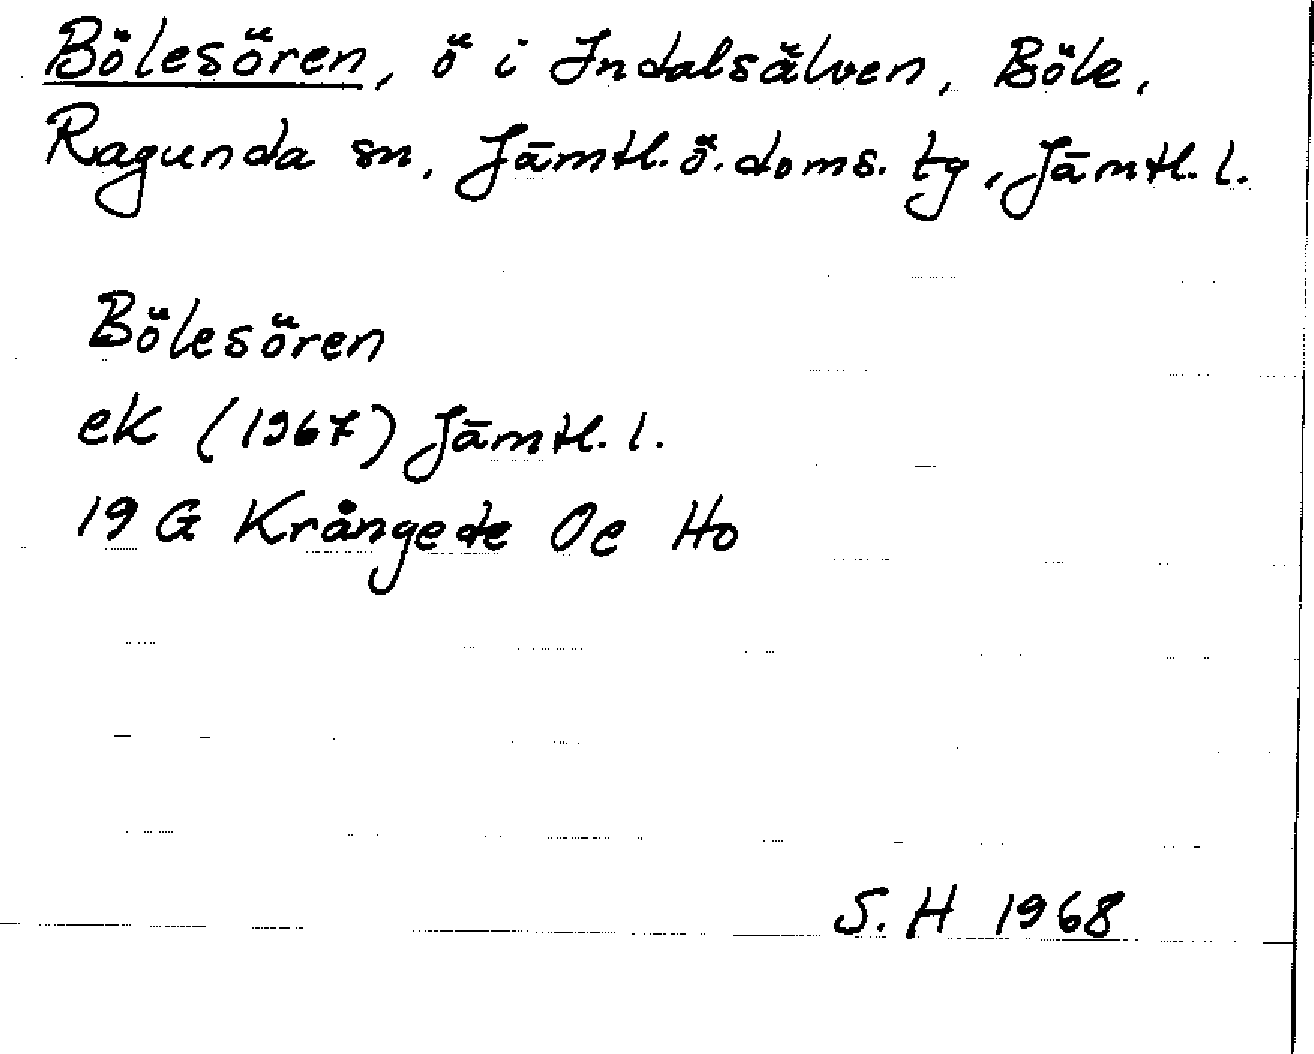 Bölesören, ö i Indalsälven, Böle,
Ragunda sn, Jämtl. ö. doms. tg, Jämtl. l.
Bölesören
ek (1967) Jämtl. l.
19 G Krångede Oc Ho
S. H 1968